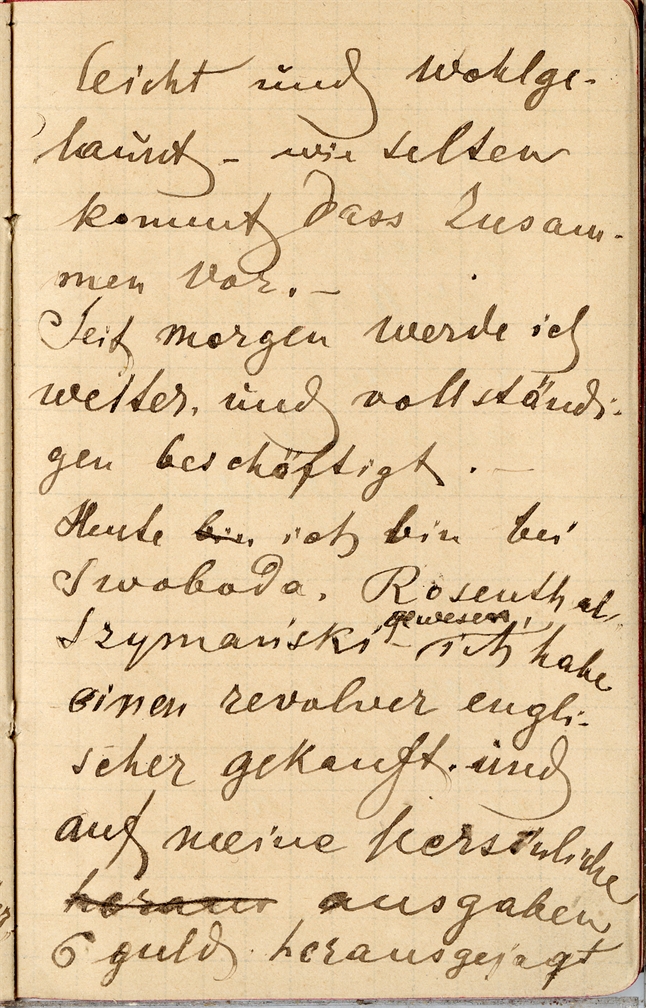 leicht und wohlge-
launt - wie selten
kommt dass Zusam-
men vor. -
Seit morgen werde ich
weiter, und vollständi-
gen beschäftigt. -
Heute bin ich bin bei
Swoboda, Rosenthal,
Szymański gewesen, - ich habe
einen revolver engli-
scher gekauft. und
auf meine persönliche
heraus ausgaben
6 guld. herausgejagt